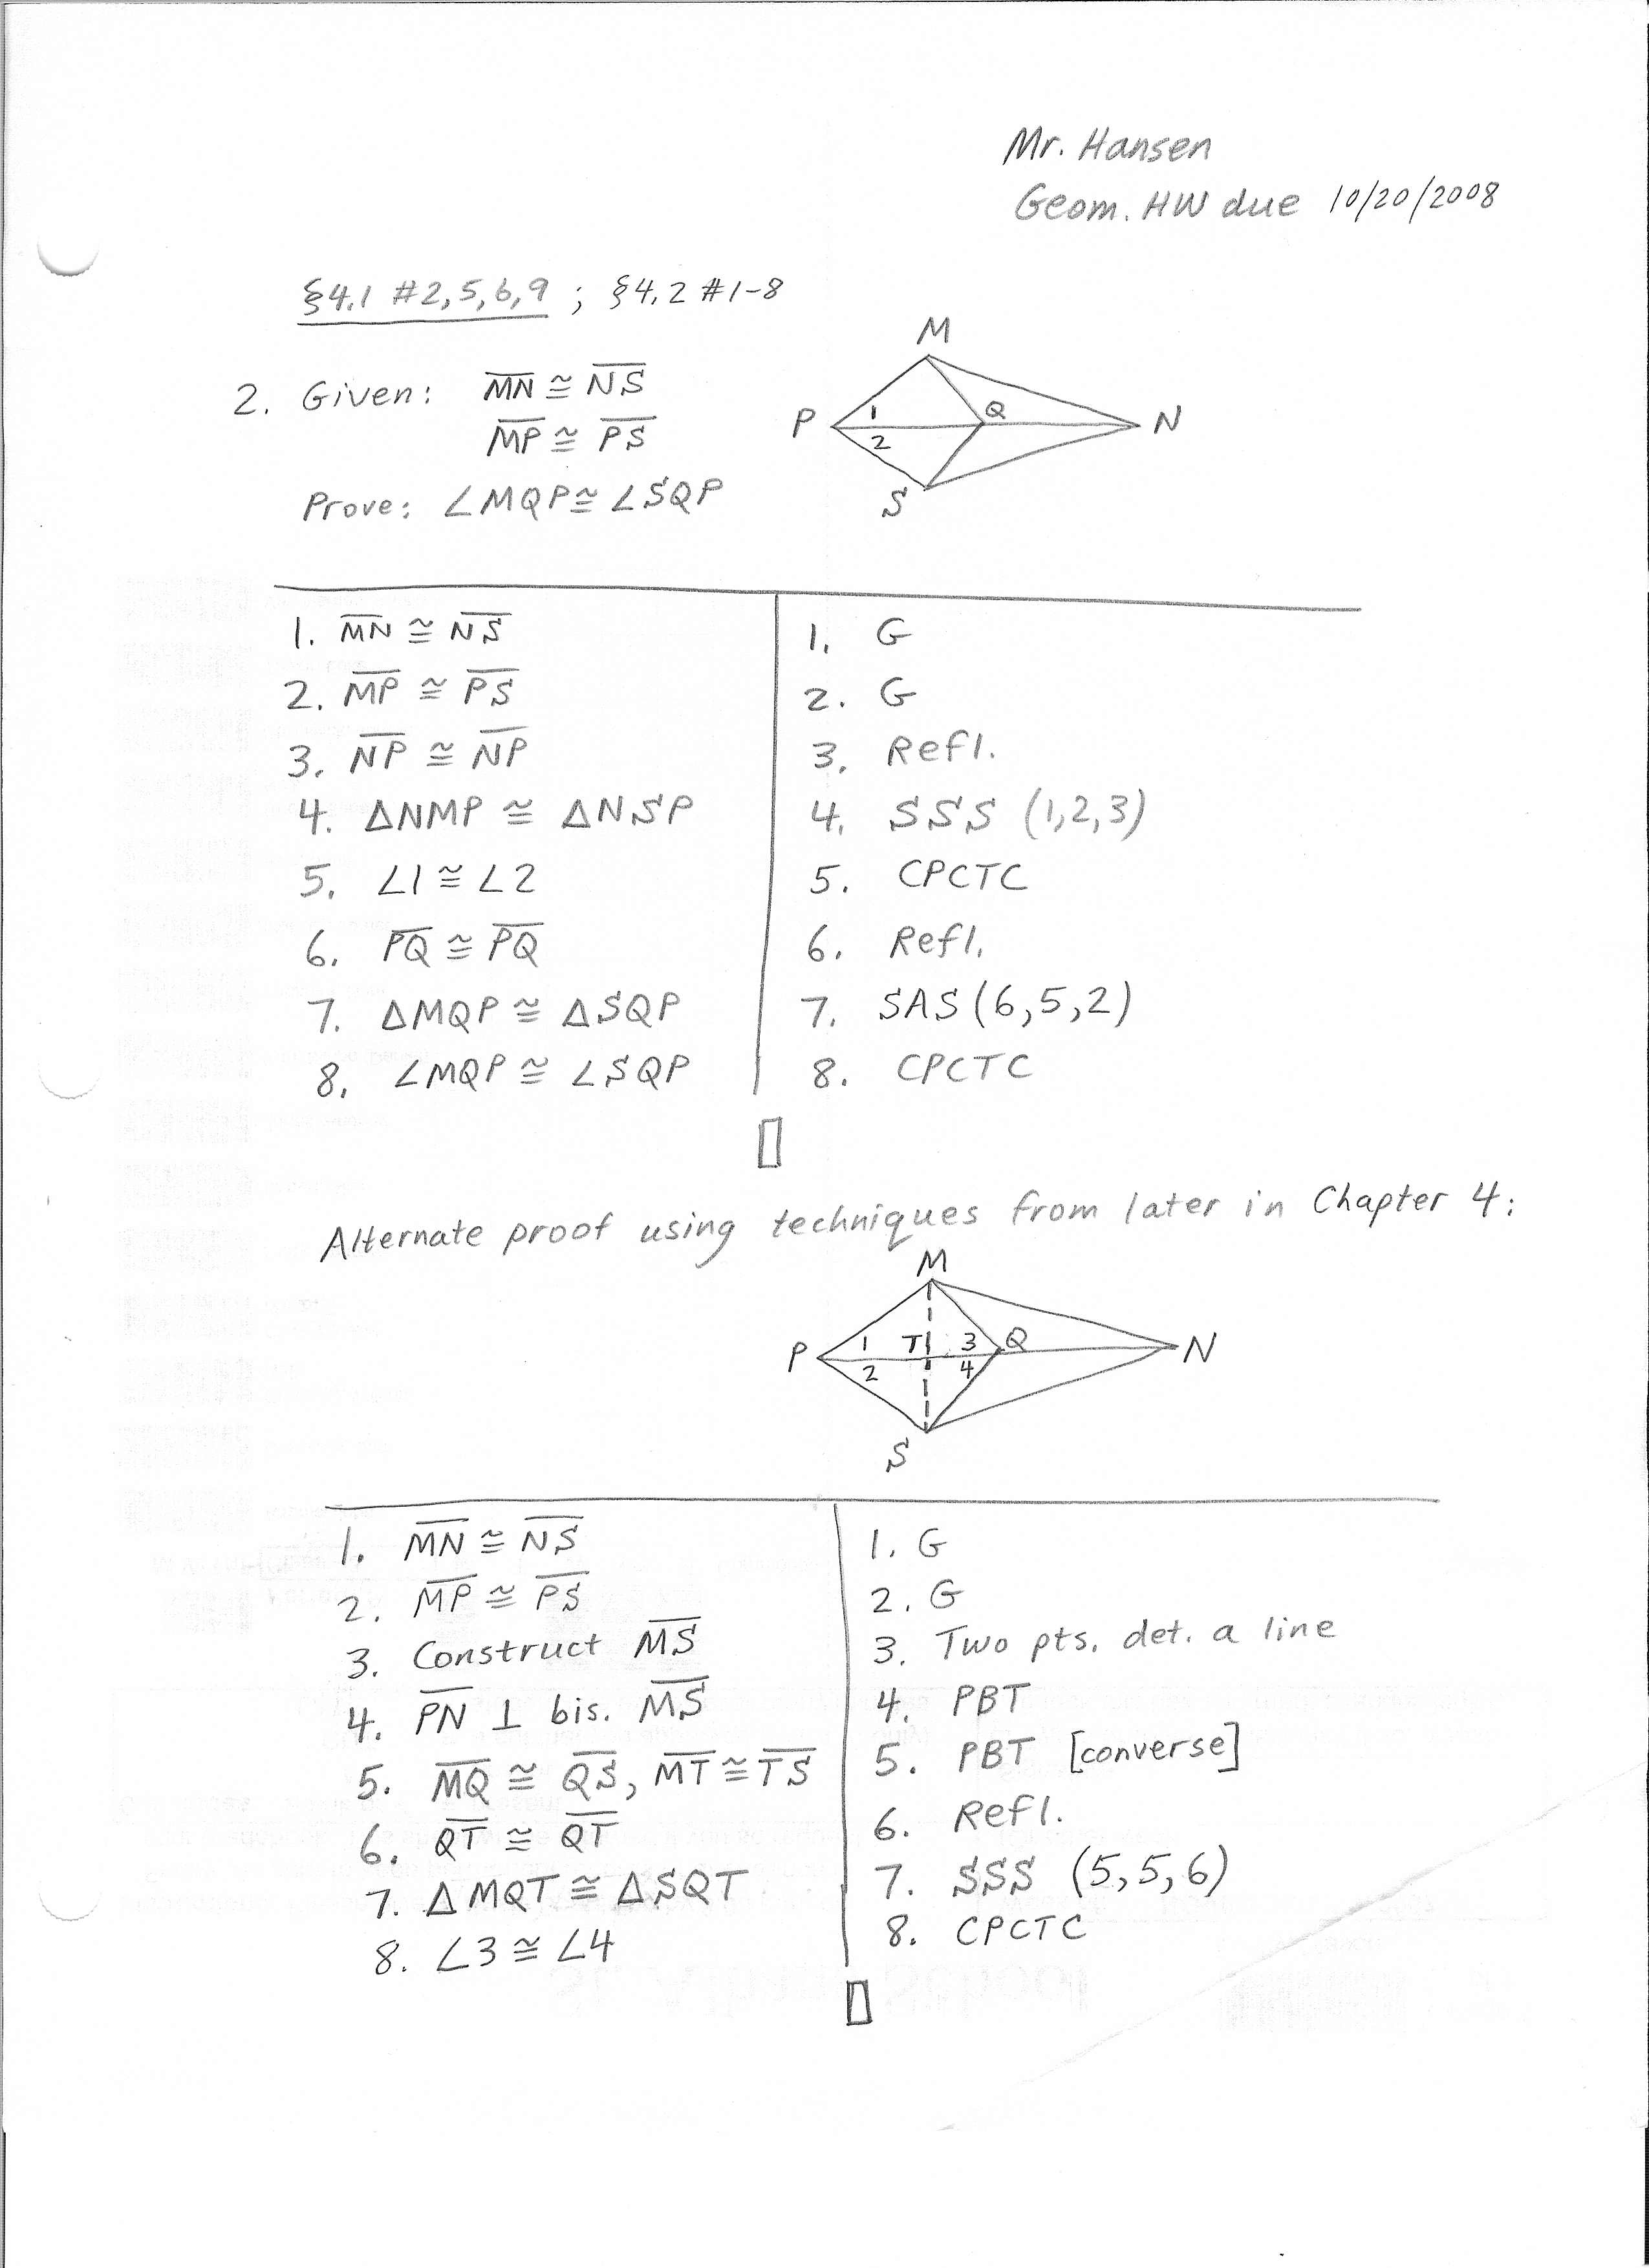 Mr. Hansen
Geom. HW due 10/20/2008
§4.1 #2,5,6,9 ; §4.2 #1-8
2. Given: MN ≅ NS
MP ≅ PS
Prove: ∠MQP ≅ ∠SQP
M
P 1 Q N
2
S
1. MN ≅ NS 1. G
2. MP ≅ PS 2. G
3. NP ≅ NP 3. Refl.
4. ΔNMP ≅ ΔNSP 4. SSS (1,2,3)
5. ∠1 ≅ ∠2 5. CPCTC
6. PQ ≅ PQ 6. Refl.
7. ΔMQP ≅ ΔSQP 7. SAS (6,5,2)
8. ∠MQP ≅ ∠SQP 8. CPCTC
Alternate proof using techniques from later in Chapter 4:
M
P 1 T 3 Q N
2 4
S
1. MN ≅ NS 1. G
2. MP ≅ PS 2. G
3. Construct MS 3. Two pts. det. a line
4. PN ⊥ bis. MS 4. PBT
5. MQ ≅ QS, MT ≅ TS 5. PBT [converse]
6. QT ≅ QT 6. Refl.
7. ΔMQT ≅ ΔSQT 7. SSS (5,5,6)
8. ∠3 ≅ ∠4 8. CPCTC